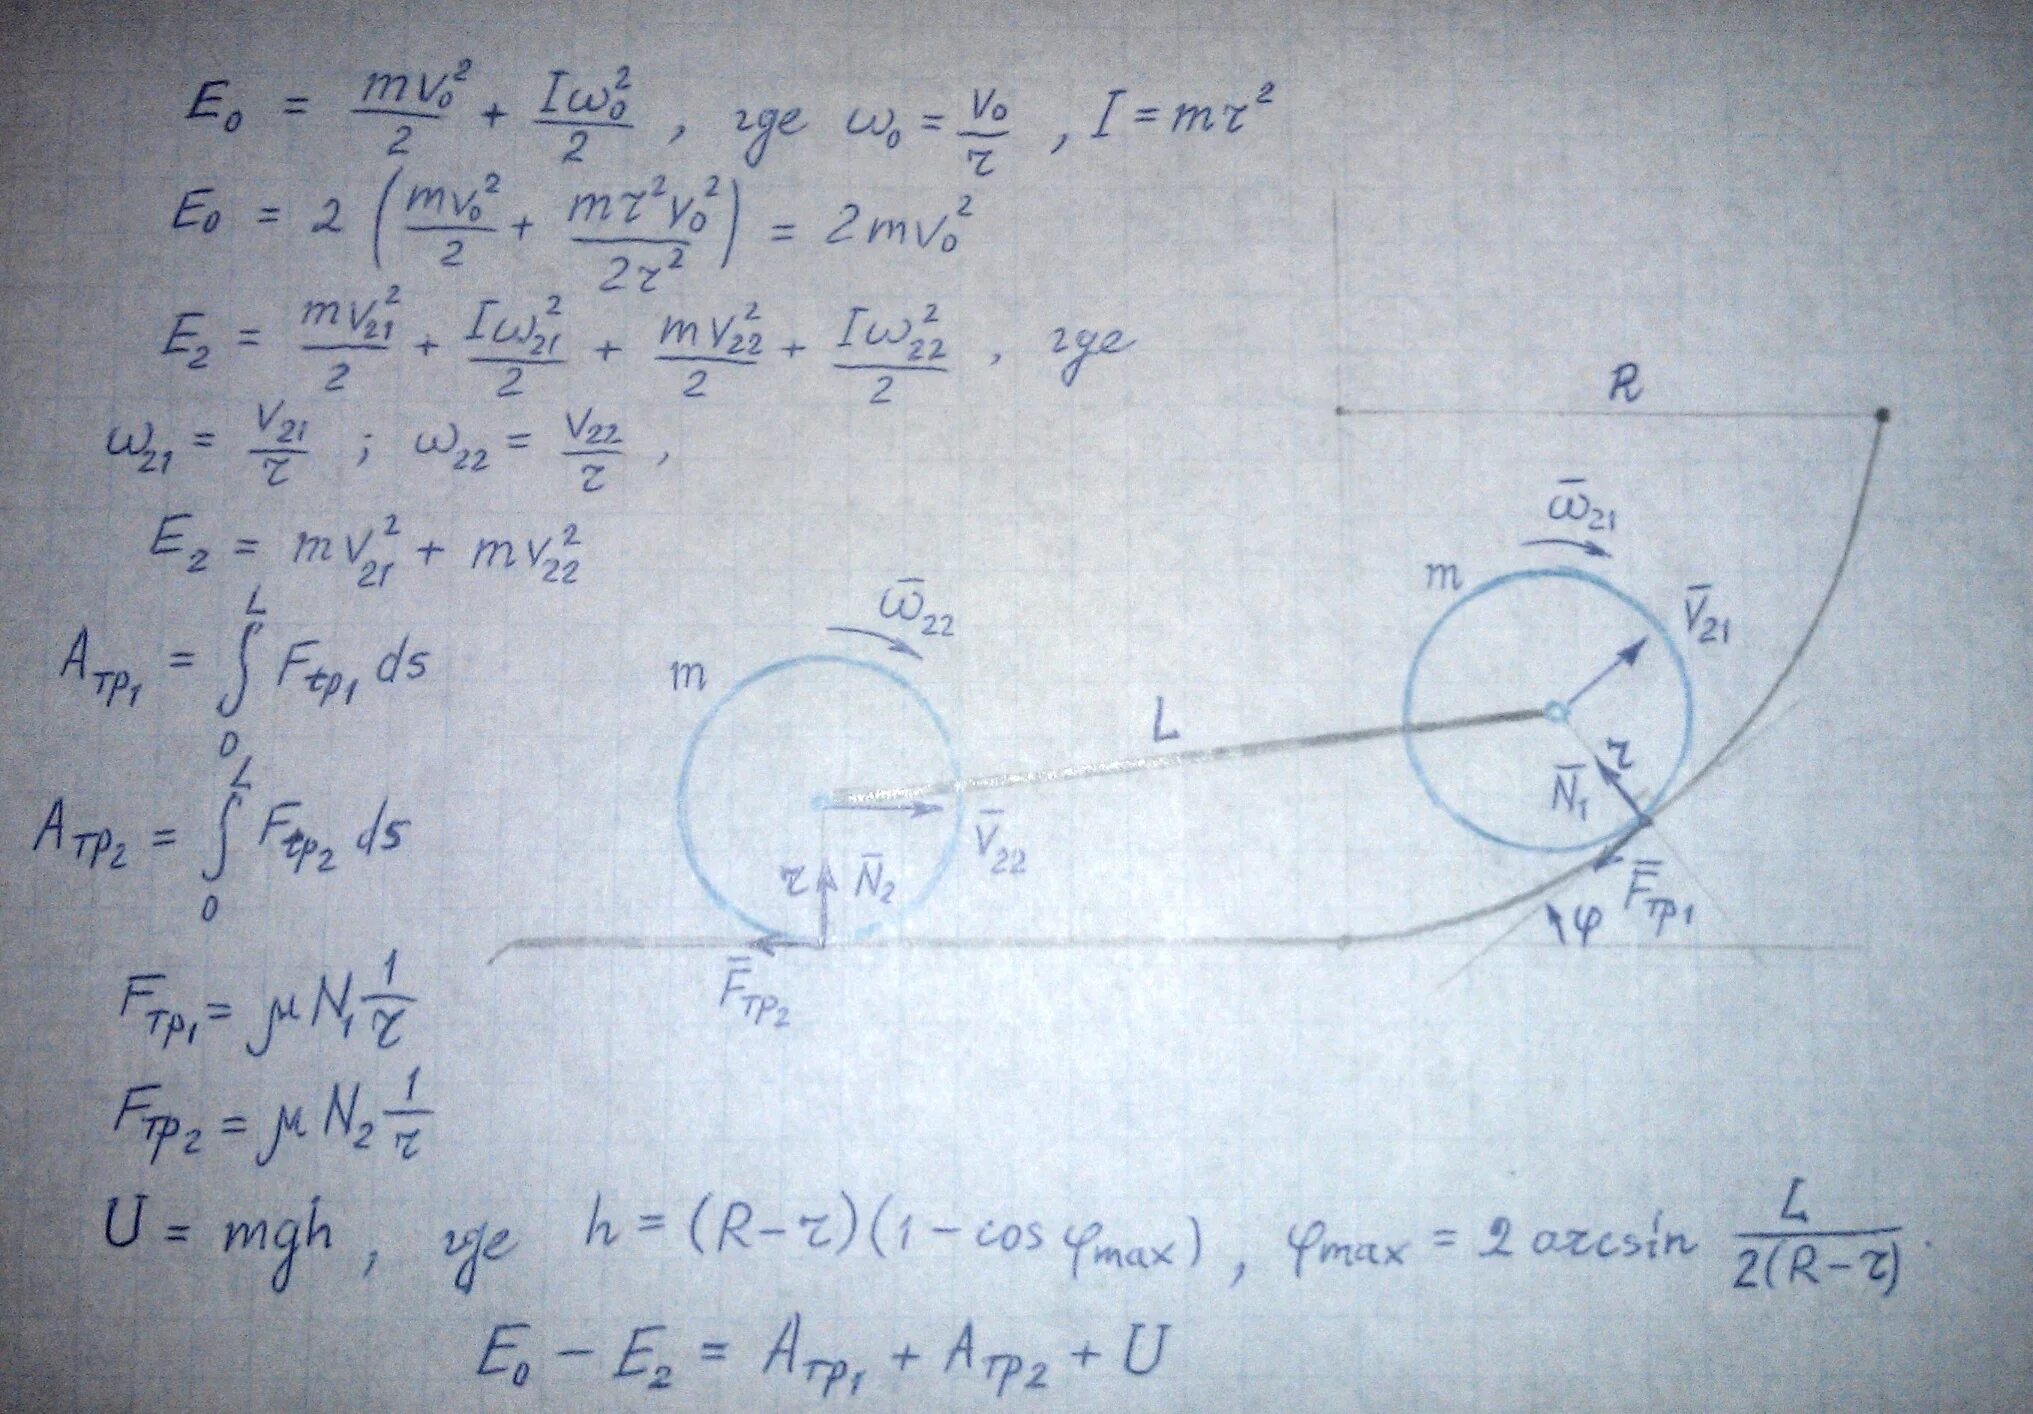 E₀ = mv₀²/2 + Iω₀²/2 , где ω₀ = v₀/r , I = mr²
E₀ = 2 (mv₀²/2 + mr²v₀²/2r²) = 2mv₀²
E₂ = mv₂₁²/2 + Iω₂₁²/2 + mv₂₂²/2 + Iω₂₂²/2 , где
ω₂₁ = v₂₁/r ; ω₂₂ = v₂₂/r ,
E₂ = mv₂₁² + mv₂₂²
Aтр₁ = ∫₀ᴸ Fтр₁ ds
Aтр₂ = ∫₀ᴸ Fтр₂ ds
Fтр₁ = μN₁ 1/r
Fтр₂ = μN₂ 1/r
U = mgh , где h = (R−r)(1−cos φmax) , φmax = 2 arcsin L/2(R−r) .
E₀ − E₂ = Aтр₁ + Aтр₂ + U
R
ω̄₂₁
m
V̄₂₁
ω̄₂₂
m
L
r
N̄₁
V̄₂₂
r
N̄₂
F̄тр₁
φ
F̄тр₂